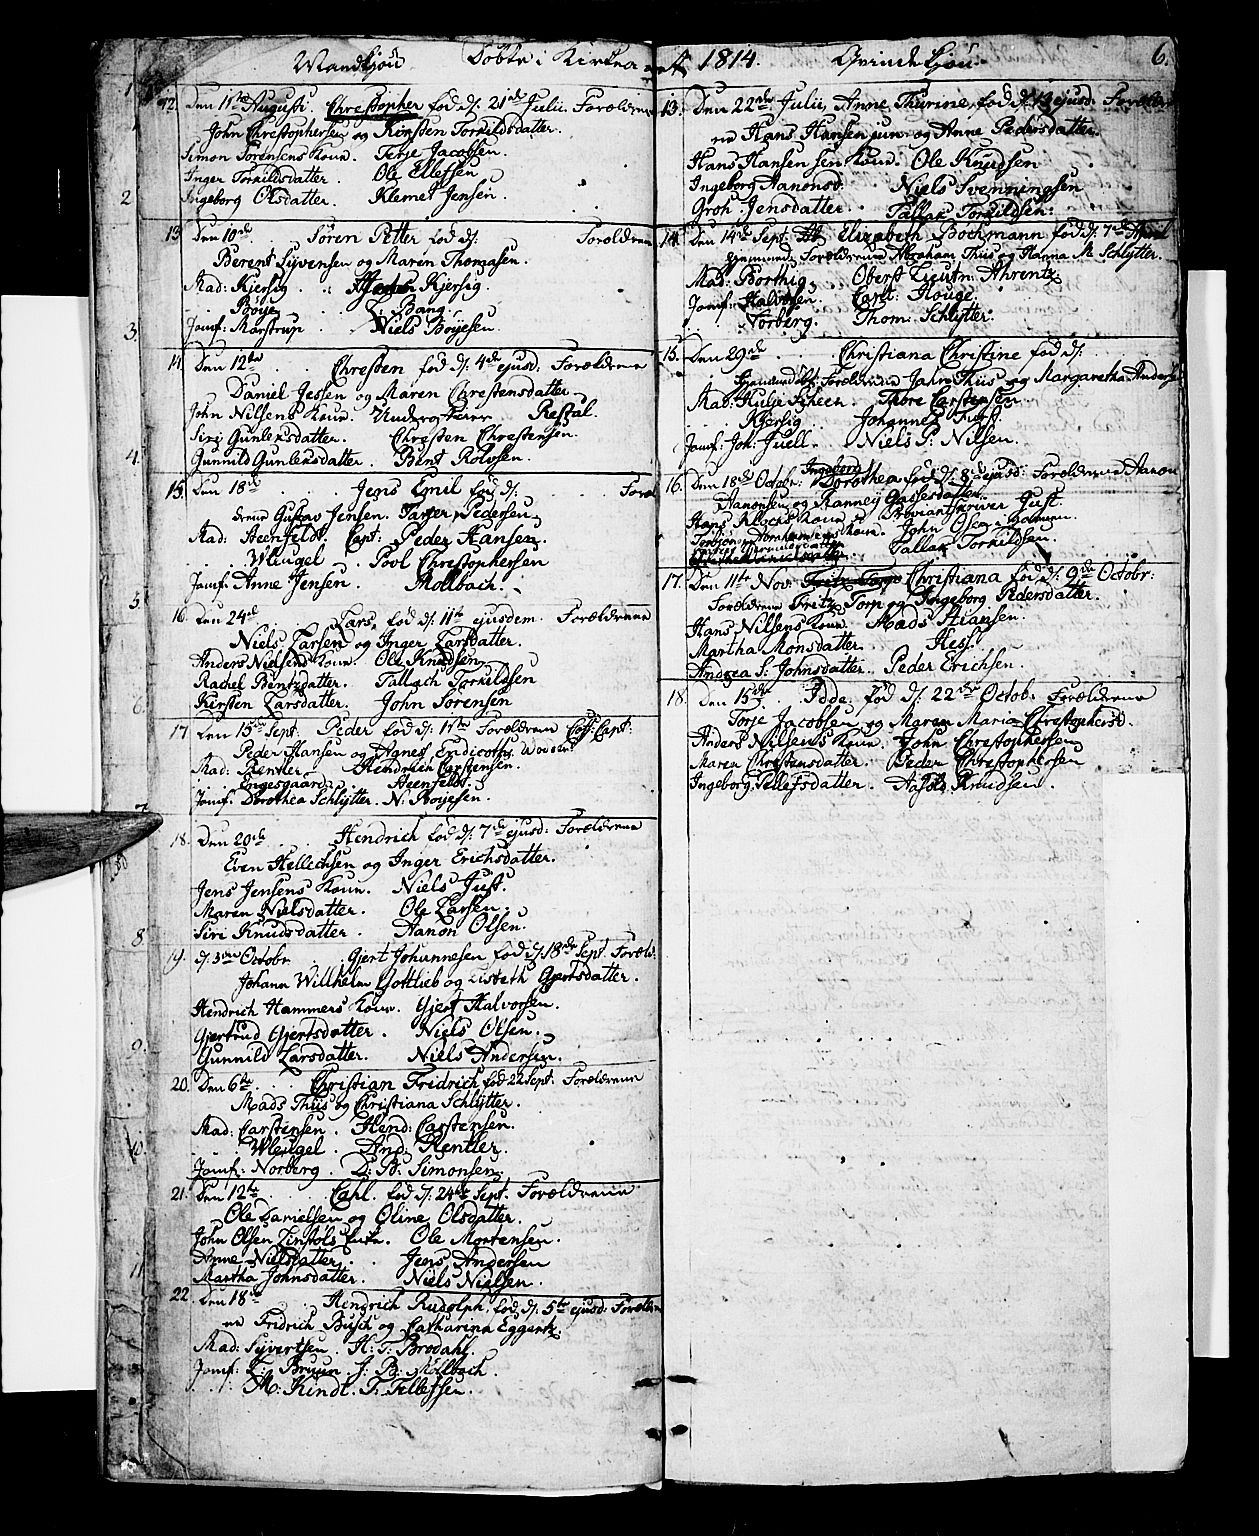 Mandkjön Döbte i Kirken
12. Den 11te Augusti. Christopher fød d: 21de Julii. Forældrene
John Christophersen og Kirsten Torkildsdatter.
Simon Sörensens Kone. Terje Jacobsen.
Inger Torkildsdatter. Ole Ellefsen
Ingeborg Olsdatter. Klemet Jensen.
13 Den 10de. Sören Petter fød d: Forældrene
Berent Syvensen og Maren Thomasen.
Mad: Kjersig. Kjersig.
Boye. Bang.
Jomf: Marstrup. Niels Boyesen.
14. Den 12te Chresten fød d: 4de ejusd. Forældrene
Daniel Jessen og Maren Chrestensdatter
John Nilsens Kone Restal.
Siri Gunlersdatter. Chresten Chrestensen.
Gunnild Gunlersdatter. Bent Rolvsen.
15. Den 18de Jens Emil fød d: Foræl
drene Gustav Jensen. Pedersen.
Mad: Heenfeldt. Capt: Peder Hansen.
Wleugel. Povl Christophersen
Jomf: Anne Jensen. Mollbach.
16. Den 24de Lars, fød d: 11te ejusdem. Forældrene
Niels Larsen og Inger Larsdatter.
Anders Nielsens Kone. Ole Knudsen
Rachel Bentzdatter. Tallach Torkildsen
Kirsten Larsdatter. John Sörensen
17. Den 15de Sept: Peder fød d: 11te Forældrene Capt:
Peder Hansen og Agnes Endicotts
Mad: Rentler Hendrich Carstensen.
Engesgaard. Heenfeldt.
Jomf: Dorothea Schlytter. N: Boyesen.
18. Den 20de Hendrich fød d: 7de ejusd: Forældrene
Even Hellechsen og Inger Erichsdatter.
Jens Jensens Kone. Niels Just.
Maren Nielsdatter. Ole Larsen.
Siri Knudsdatter. Aanon Olsen.
19. d: 3die Octobr. Gjert Johannesen fød d: 18de Sept. Foræld:
Johann Willhelm Gottlieb og Lisbeth Gjertsdatter.
Hendrich Hammers Kone. Gjert Halvorsen.
Gjertrud Gjertsdatter. Niels Olsen.
Gunnild Larsdatter. Niels Andersen.
20. Den 6te Christian Fridrich fød 22 Sept: Forældrene
Mads Thiis og Christiana Schlytter.
Mad: Carstensen. Hend: Carstensen.
Wleugel. And: Rentler.
Jomf: Norberg. D: B: Simonsen.
21. Den 12te Carl. fød d: 24de Sept. Forældrene
Ole Danielsen og Oline Olsdatter.
John Olsen Ole Mortensen.
Anne Nielsdatter. Jens Andersen
Martha Johnsdatter. Niels Nielsen.
22. Den 18de Hendrich Rudolph, fød d: 5te ejusd: Forældre
ne Fridrich Busch og Catharina
Mad: Syvertsen. H: T: Brodahl.
Jomf: T: Bruun. J: B: Mollbach.
M: Kindt. T: Tellefsen.
1814. Qvindekjön. 6.
13. Den 22de Julii, Anne Thurine, fød d: 13 ejusd: Foræld
ne Hans Hansen jun: og Anne Pedersdatter.
Hans Hansen sen Kone. Ole Knudsen
Ingeborg Aanonsd: Niels Svenningsen
Groh Jensdatter. Tallak Torkildsen.
14. Den 14de Sept: Elizabeth Bochmann fød d: 7de April
Forældrene Abraham Thiis og Hanna M: Schlytter.
Mad: Borthig. Oberst Lieutn: Ahrentz
Jomf: Halvorsen. Carl: Houge.
Norberg. Thom: Schlytter.
15. Den 29de Christiana Christine fød d:
Forældrene Jahn Thiis og Margaretha Anders
Mad: Scheen. Thore Carstensen.
Kjersig. Johannes Thiis.
Jomf: Joh: Juell. Niels P: Nilsen.
16. Den 18de Octobr: Ingeborg Dorothea fød d: 8de ejusd: Forældrene Aanon
Aanonsen og Ranney Gassesdatter.
Hans Klocks Kone. Proviantskriver Just.
John Olsen
Tallak Torkildsen.
17. Den 11te Nov: Fritz Torp Christiana fød d: 9de Octobr:
Forældrene Fritz Torp og Ingeborg Pedersdatter.
Hans Nilsens Kone. Mads Stiansen.
Martha Monsdatter. Hess.
Andrea S: Johnsdatter. Peder Erichsen.
18. Den 15de Idde, fød d: 22de Octobr: Forældrene
Torje Jacobsen og Maren Maria Christophersd.
Anders Nilsens Kone. John Christophersen
Maren Christensdatter. Peder Christophersen
Ingeborg Tellefsdatter. Knudsen.